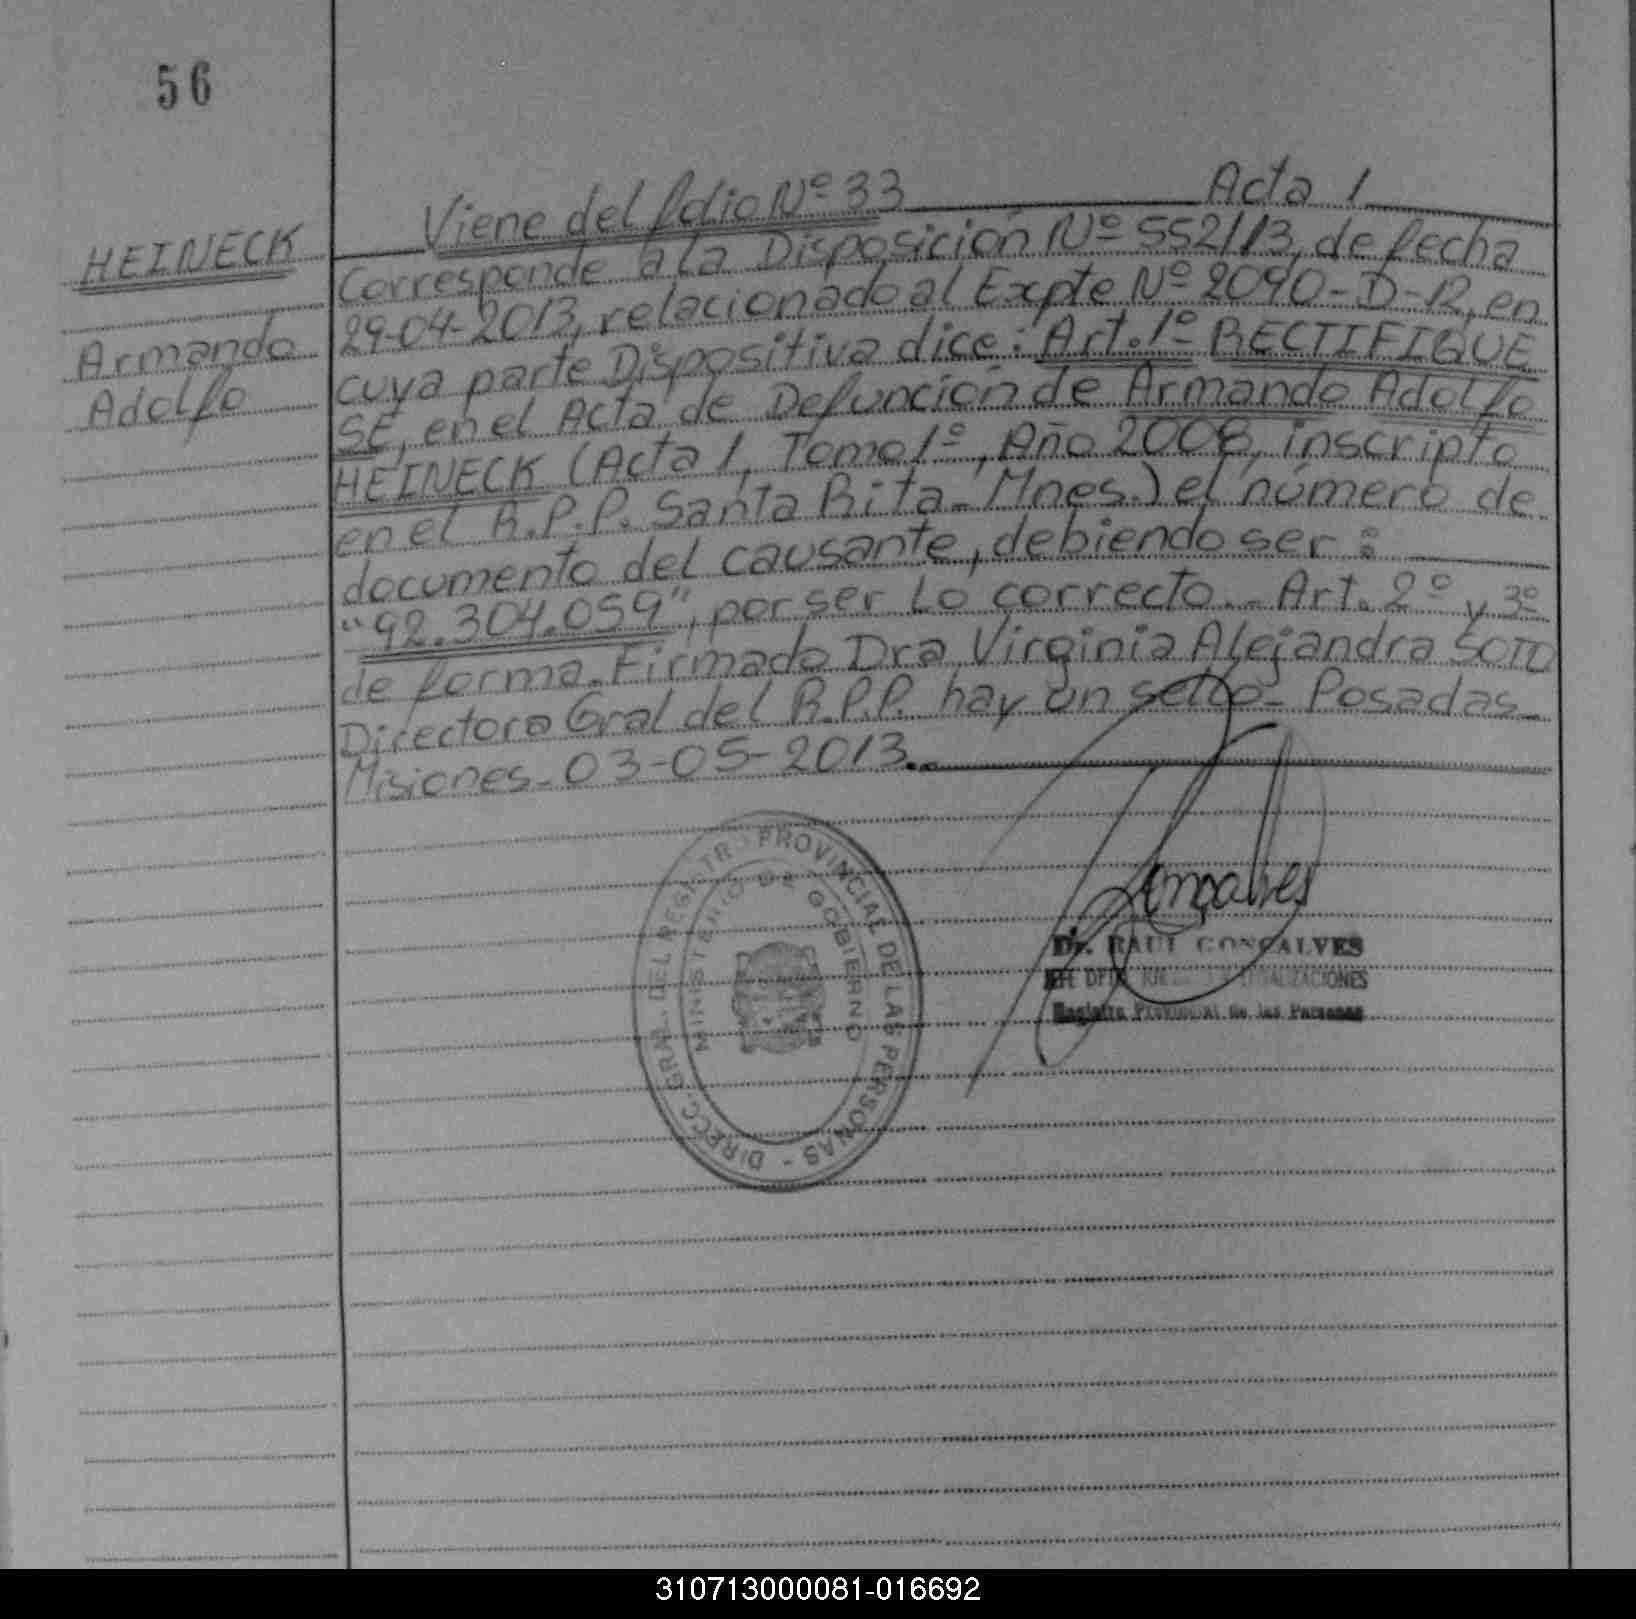 56
Viene del folio Nº 33 Acta 1
HEINECK
Armando
Adolfo
Corresponde a la Disposición Nº 552/13, de fecha
29-04-2013, relacionado al Expte Nº 2090-D-12, en
cuya parte Dispositiva dice: Art. 1º RECTIFIQUE
SE, en el Acta de Defunción de Armando Adolfo
HEINECK (Acta 1, Tomo 1º, Año 2008, inscripto
en el R.P.P. Santa Rita - Mnes.) el número de
documento del causante, debiendo ser:
"92.304.059", por ser lo correcto.- Art. 2º y 3º
de forma. Firmado Dra Virginia Alejandra SOTO
Directora Gral del R.P.P. hay un sello - Posadas
Misiones - 03-05-2013.-
DIRECC. GRAL. DEL REGISTRO PROVINCIAL DE LAS PERSONAS -
MINISTERIO DE GOBIERNO
Gonçalves
Dr. RAUL GONCALVES
LEGALIZACIONES
Registro Provincial de las Personas
310713000081-016692